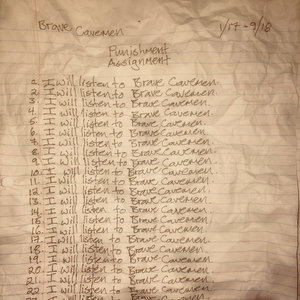 Brave Cavemen 1/17-9/18
Punishment
Assignment
1. I will listen to Brave Cavemen.
2. I will listen to Brave Cavemen.
3. I will listen to Brave Cavemen.
4. I will listen to Brave Cavemen.
5. I will listen to Brave Cavemen.
6. I will listen to Brave Cavemen.
7. I will listen to Brave Cavemen.
8. I will listen to Brave Cavemen.
9. I will listen to Brave Cavemen.
10. I will listen to Brave Cavemen.
11. I will listen to Brave Cavemen.
12. I will listen to Brave Cavemen.
13. I will listen to Brave Cavemen.
14. I will listen to Brave Cavemen.
15. I will listen to Brave Cavemen.
16. I will listen to Brave Cavemen.
17. I will listen to Brave Cavemen.
18. I will listen to Brave Cavemen.
19. I will listen to Brave Cavemen.
20. I will listen to Brave Cavemen.
21. I will listen to Brave Cavemen.
22. I will listen to Brave Cavemen.